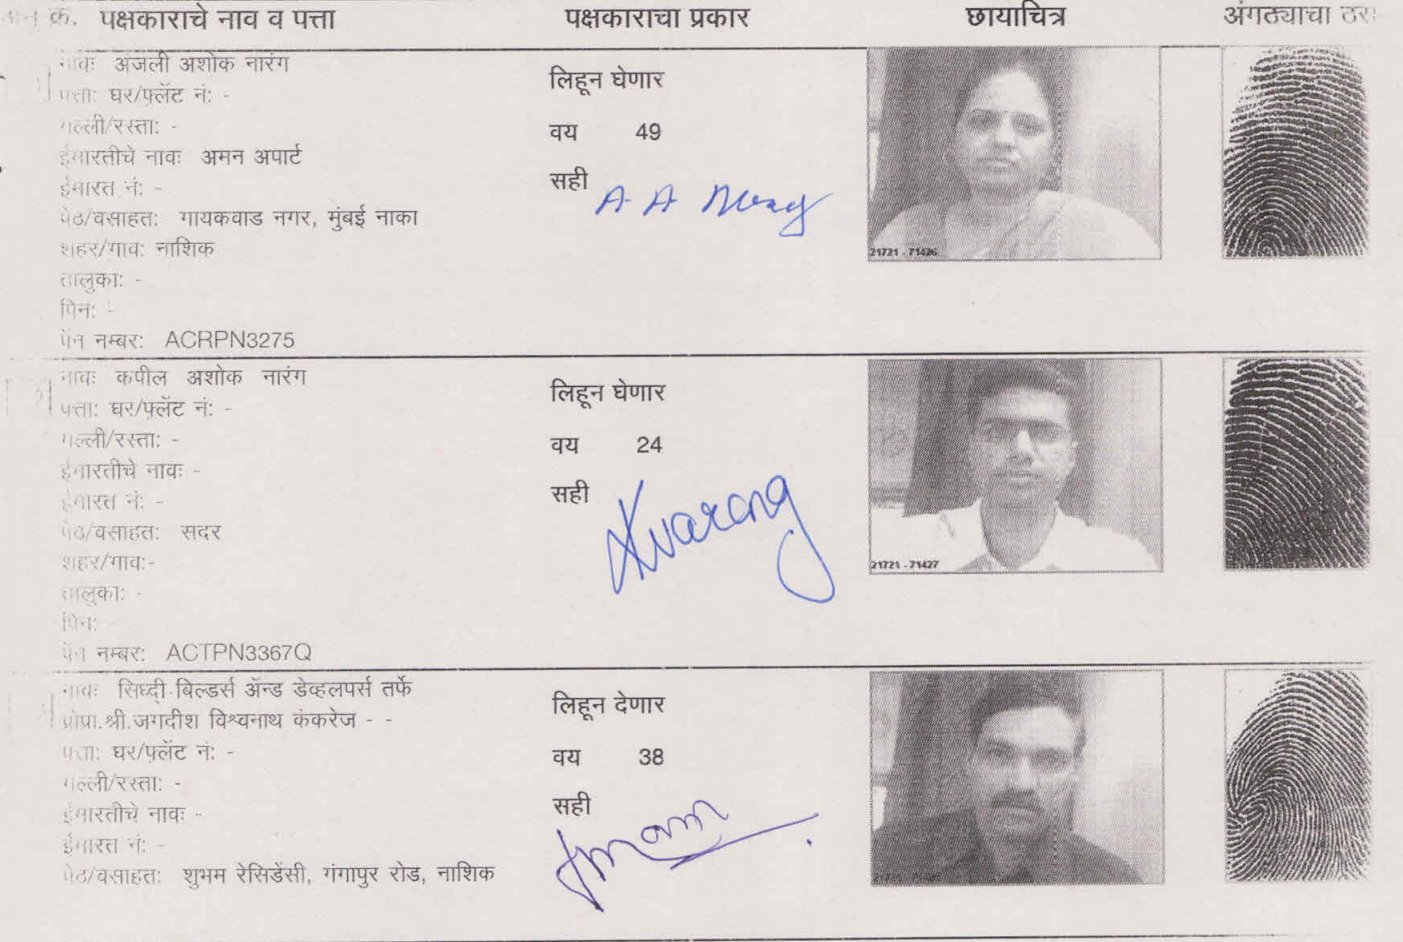 क्र. पक्षकाराचे नाव व पत्ता पक्षकाराचा प्रकार छायाचित्र अंगठ्याचा
नावः अंजली अशोक नारंग
पत्ता: घर/फ्लॅट नं: -
गल्ली/रस्ता: -
ईमारतीचे नावः अमन अपार्ट
ईमारत नं: -
पेठ/वसाहत: गायकवाड नगर, मुंबई नाका
शहर/गाव: नाशिक
तालुका: -
पिन: -
पॅन नम्बर: ACRPN3275
लिहून घेणार
वय 49
सही
A A
21721 - 71426
नावः कपील अशोक नारंग
पत्ता: घर/फ्लॅट नं: -
गल्ली/रस्ता: -
ईमारतीचे नावः -
ईमारत नं: -
पेठ/वसाहत: सदर
शहर/गाव:-
तालुका: -
पिन: -
पॅन नम्बर: ACTPN3367Q
लिहून घेणार
वय 24
सही
21721 - 71427
नावः सिध्दी बिल्डर्स ॲन्ड डेव्हलपर्स तर्फे
प्रोप्रा.श्री.जगदीश विश्वनाथ कंकरेज - -
पत्ता: घर/फ्लॅट नं: -
गल्ली/रस्ता: -
ईमारतीचे नावः -
ईमारत नं: -
पेठ/वसाहत: शुभम रेसिडेंसी, गंगापुर रोड, नाशिक
लिहून देणार
वय 38
सही